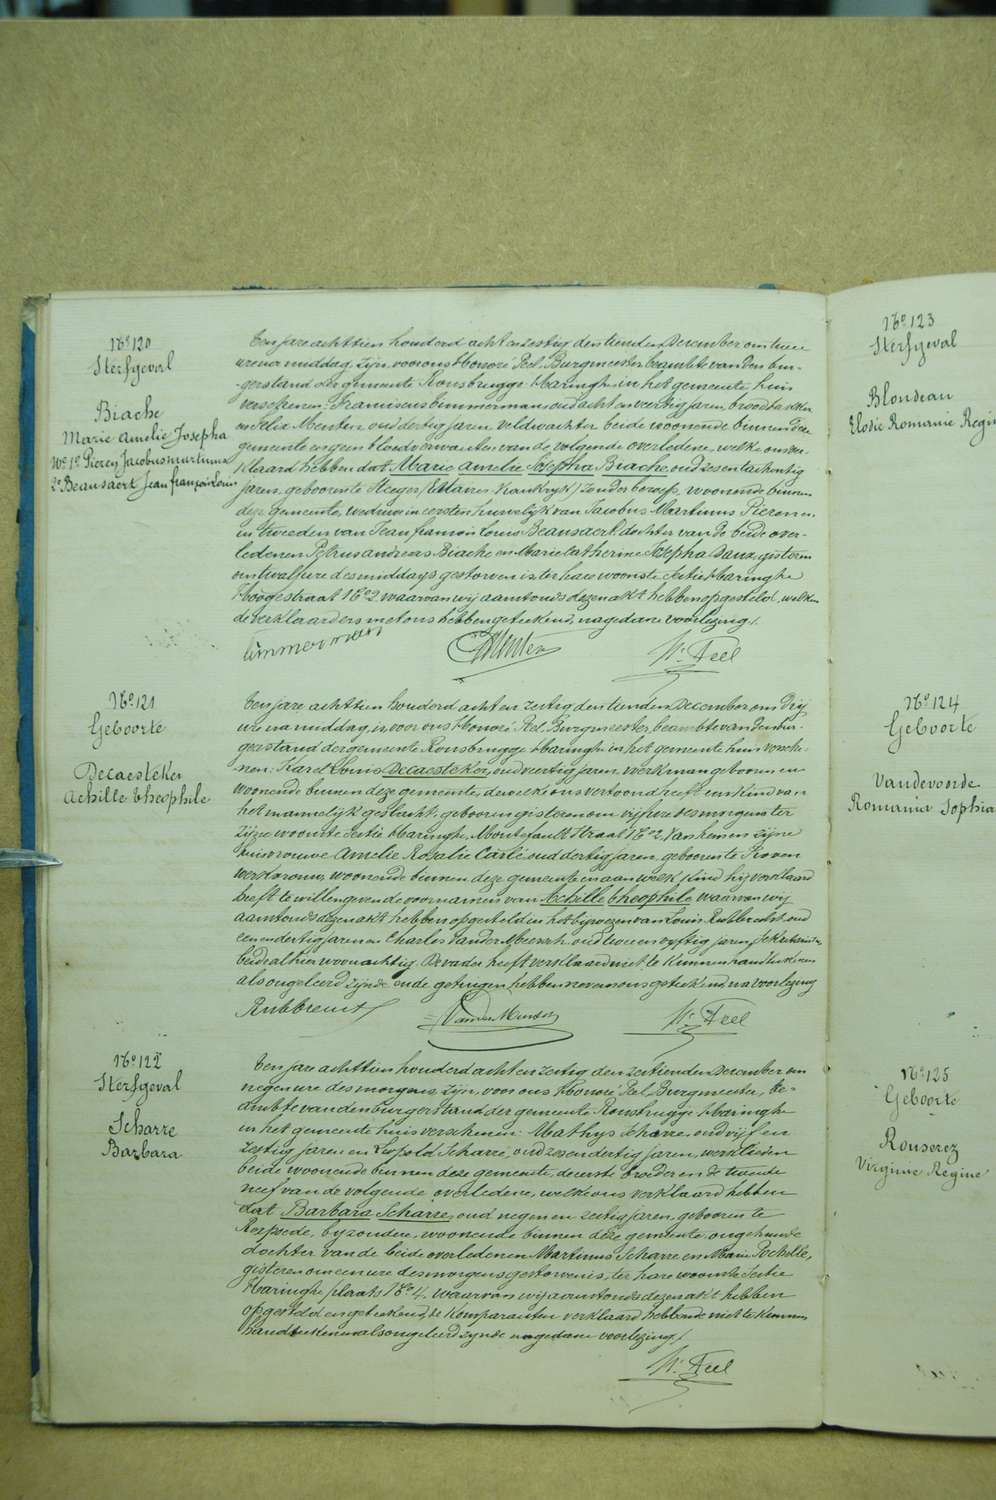 No 120
Sterfgeval
Biache
Marie Amelie Josepha
We 1e Pieren Jacobus martinus
2e Beausaert Jean françois Louis
Ten jare achttien honderd acht en zestig den tienden December om twee
uren namiddag, zijn, voor ons Honoré Feel, Burgmeester beambte van den bur-
gerstand der gemeente Rousbrugge-Haringhe in het gemeente huis
verschenen: Franciscus Timmerman, oud acht en veertig jaren, broodbakker
en Felix Menten oud dertig jaren, veldwachter beide woonende binnen deze
gemeente en geen bloedverwanten van de volgende overledene, welke ons ver-
klaard hebben dat Marie Amelie Josepha Biache oud zes en tachentig
jaren, geboren te Fleger, zonder beroep, woonende binnen
deze gemeente, weduwe in eersten huwelijk van Jacobus Martinus Pieren en
in tweeden van Jean françois Louis Beausaert, dochter van de beide over-
ledenen Petrus andreas Biache en Marie Catherine Josepha Daux, gisteren
om twalf ure des middags gestorven is ter hare woonste Sectie Haringhe
Hoogestraat No 2 waarvan wij aanstonds dezen akt hebben opgesteld, welken
de verklaarders met ons hebben geteekend, na gedane voorlezing./.
timmerman Menten H. Feel
No 121
Geboorte
Decaesteker
Achille Theophile
Ten jare achttien honderd acht en zestig den tienden December om drij
ure namiddag, is voor ons Honoré Feel, Burgmeester, beambte van den bur-
gerstand der gemeente Rousbrugge-Haringhe in het gemeente huis versche-
nen: Karel Louis Decaesteker, oud veertig jaren, werkman geboren en
woonende binnen deze gemeente, dewelke ons vertoond heeft een kind van
het mannelijk geslacht, geboren gisteren om vijf ure des morgens ter
zijne woonste Sectie Haringhe, straat No 2, van hem en zijne
huisvrouwe Amelie Rosalie Carlé oud dertig jaren, geboren te Proven
werkvrouw, woonende binnen deze gemeente en aan welk kind hij verklaard
heeft te willen geven de voornamen van Achille Theophile waarvan wij
aanstonds dezen akt hebben opgesteld in het bijwezen van Louis Rubbrecht oud
een en dertig jaren en Charles Van der Meersch oud twee en vyftig jaren,
beide alhier woonachtig. De vader heeft verklaard niet te kunnen handteekenen
als ongeleerd zijnde en de getuigen hebben nevens ons geteekend, na voorlezing
Rubbrecht Vander Meersch H. Feel
No 122
Sterfgeval
Scharre
Barbara
Ten jare achttien honderd acht en zestig den zestienden December om
negen ure des morgens, zijn, voor ons Honoré Feel, Burgmeester, be-
ambte van den burgerstand der gemeente Rousbrugge-Haringhe
in het gemeente huis verschenen: Mathys Scharre, oud vijf en
zestig jaren en Leopold Scharre, oud zes en dertig jaren, werklieden
beide woonende binnen deze gemeente, de eerste broeder en de tweede
neef van de volgende overledene, welke ons verklaard hebben
dat Barbara Scharre, oud negen en zestig jaren, geboren te
Rexpoede, byzondere, woonende binnen deze gemeente, ongehuwde
dochter van de beide overledenen Martinus Scharre en Marie Pochelle,
gisteren om een ure des morgens gestorven is, ter hare woonste Sectie
Haringhe plaats No 4, waarvan wij aanstonds dezen akt hebben
opgesteld en geteekend, de komparanten verklaard hebbende niet te kunnen
handteekenen als ongeleerd zynde na gedane voorlezing./.
H. Feel
No 123
Sterfgeval
Blondeau
Elodie Romanie Regin
No 124
Geboorte
Vandevoorde
Romanie Sophia
No 125
Geboorte
Rouserez
Virginie Regine